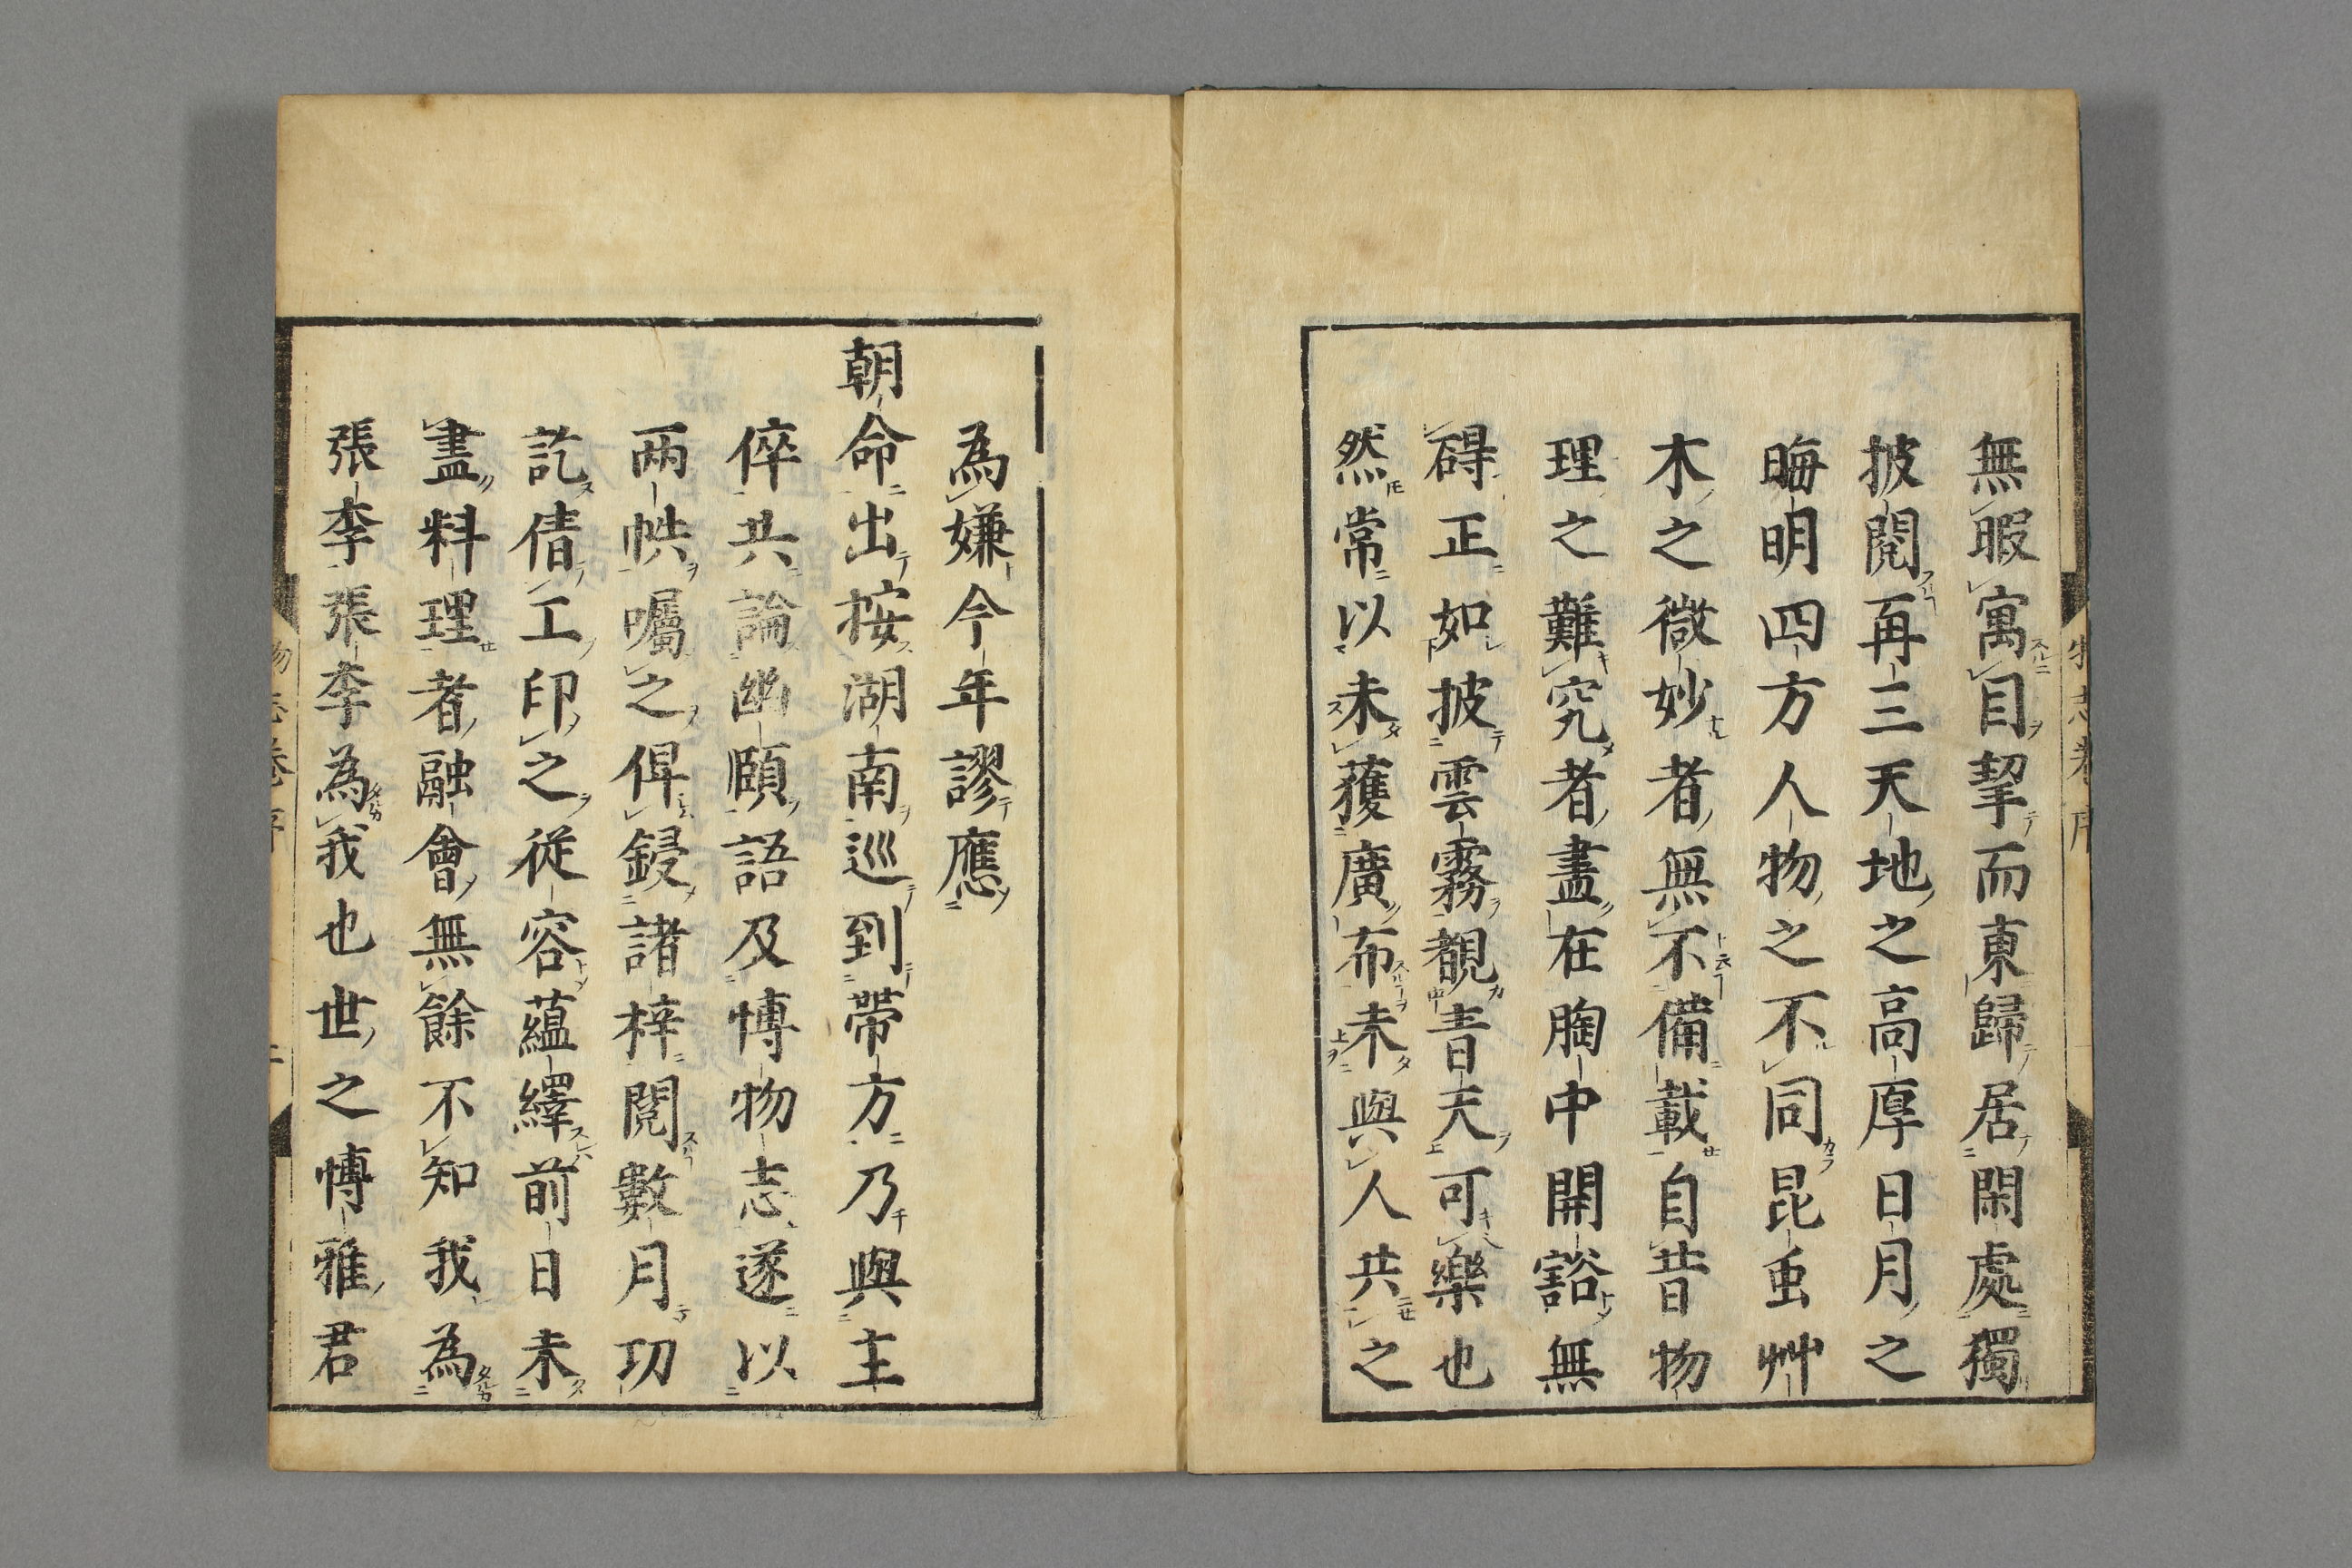 無暇寓目挈而東歸居閑處獨
披閱再三天地之高厚日月之
晦明四方人物之不同昆虫艸
木之微妙者無不備載自昔物
理之難究者盡在胸中開豁無
碍正如披雲霧覩青天可樂也
然常以未獲廣布未與人共之
為嫌今年謬應
朝命出按湖南巡到帶方乃與主
倅共論幽頤語及博物志遂以
兩帙囑之俾鋟諸梓閱數月功
訖倩工印之從容蘊繹前日未
盡料理者融會無餘不知我為
張李張李為我也世之博雅君